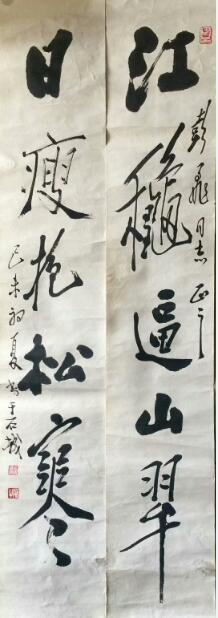 江穐逼山翠
彭飛同志正之
日瘦抱松寒
己未初夏書于石城